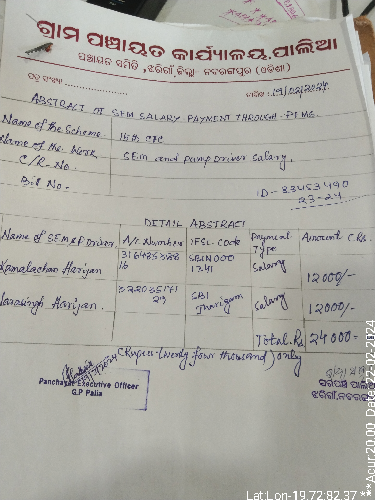 ଗ୍ରାମ ପଞ୍ଚାୟତ କାର୍ଯ୍ୟାଳୟ, ପାଲିଆ
ପଞ୍ଚାୟତ ସମିତି, ଝରିଗାଁ, ଜିଲ୍ଲା- ନବରଙ୍ଗପୁର (ଓଡ଼ିଶା)
ABSTRACT OF SEM SALARY PAYMENT THROUGH - PFMS.
Name of the Scheme 15th CFC
Name of the Work SEM and Pump Driver Salary.
C/R. No.
Bill No-
ID- 83453490
23-24
DETAIL ABSTRACT
Name of SEM & P. Driver. A/c Number IFSC-Code Payment Type Amount C Rs.
Kamalachan Hariyan Salary 12000/-
Hariyan. SBI Jharigam Salary 12000/-
Total. Rs 24000-
(Rupees twenty four thousand) only
Panchayat Executive Officer
G.P Palia
ସରପଞ୍ଚ ପାଲିଆ
Lat:Lon-19.72:82.37 ***Acur:20.00 Date:22-02-2024